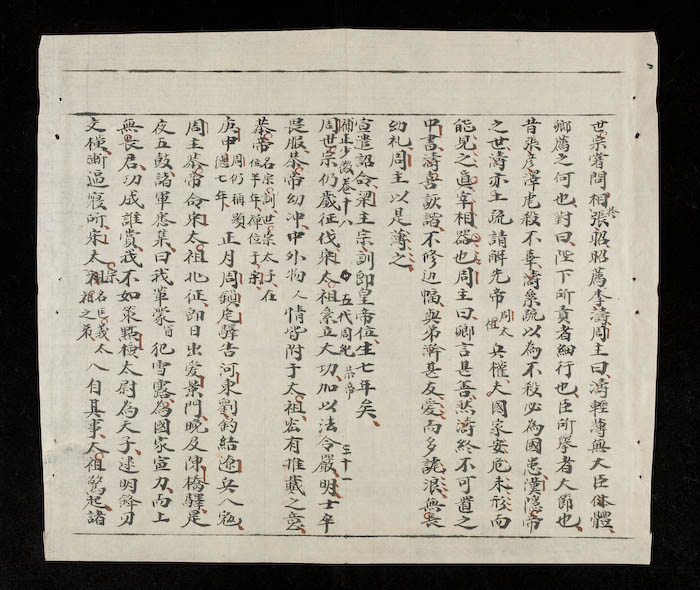 世宗嘗問相張昭昭薦李濤周主曰濤輕薄無大臣体體
卿薦之何也對曰陛下所責者細行也臣所挙者大節也
昔張彦澤虐殺不辜濤累疏以為不殺必為國患漢隠帝
之世濤亦上疏請解先帝周太祖兵權夫國家安危未形而
能見之真宰相器也周主曰卿言甚善然濤終不可置之
中書濤喜詼諧不修边幅與弟澣甚友愛而多謔浪無長
幼礼周主以是薄之
宣遣詔命梁主宗訓即皇帝位生七年矣
補正少微卷十八 五代周紀 恭帝 三十一
周世宗仍歲征伐宋太祖累立大功加以法令嚴明士卒
畏服恭帝幼冲中外物人情皆附于太祖密有推戴之意
恭帝名宗訓世宗太子在位半年禅位于宋
庚申周仍稱顯德七年正月周鎮定驛告河東劉鈞結遼兵入寇
周主恭帝命宋太祖北征即日出爱景門晚及陳橋驛是
夜五鼓諸軍悉集曰我軰蒙冒犯雪露為國家宣力而上
無長君功成誰賞我不如策點檢太尉為天子遲明鋒刃
交橫漸逼寢所宋太宗名匡義太祖之弟入白其事太祖驚起諸